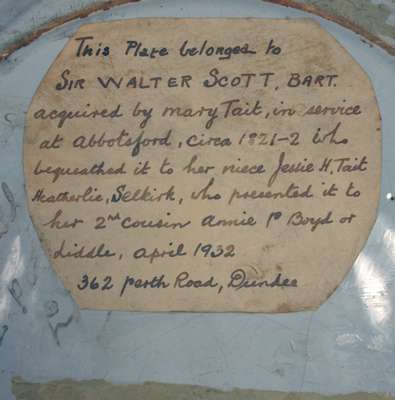 This Plate belonges to
SIR WALTER SCOTT, BART.
acquired by mary Tait, in service
at Abbotsford, circa 1821-2 who
bequeathed it to her niece Jessie H. Tait
Heatherlie, Selkirk, who presented it to
her 2nd cousin Annie P Boyd or
Liddle, April 1932
362 perth Road, Dundee